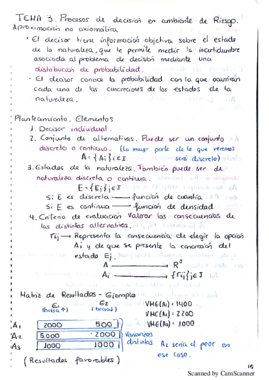 TEMA 3. Procesos de decisión en ambiente de Riesgo.
Aproximación no axiomática.
• El decisor tiene información objetiva sobre el estado
de la naturaleza, que le permite medir la incertidumbre
asociada al problema de decisión mediante una
distribución de probabilidad.
• El decisor conoce la probabilidad con la que ocurrirán
cada una de las concreciones de los estados de la
naturaleza.
Planteamiento. Elementos
1. Decisor individual.
2. Conjunto de alternativas. Puede ser un conjunto
discreto o continuo. (la mayor parte de lo que veremos
A = {Ai} i∈I será discreto)
3. Estados de la naturaleza. También puede ser de
naturaleza discreta o continua.
E = {Ej} j∈J
Si E es discreto → función de cuantía
Si E es continuo → función de densidad
4. Criterio de evaluación Valorar las consecuencias de
las distintas alternativas.
rij → Representa la consecuencia de elegir la opción
Ai y de que se presente la concreción del
estado Ej
A → R
Ai → {rij} j∈J
Matriz de Resultados - Ejemplo
E1 E2 VME(A1) = 1400
VME(A2) = 2200
VME(A3) = 1000
A1 2000 500
A2 5000 -2000 Varianzas distintas A2 sería el peor en
A3 1000 1000 ese caso.
(Resultados favorables)
Scanned by CamScanner